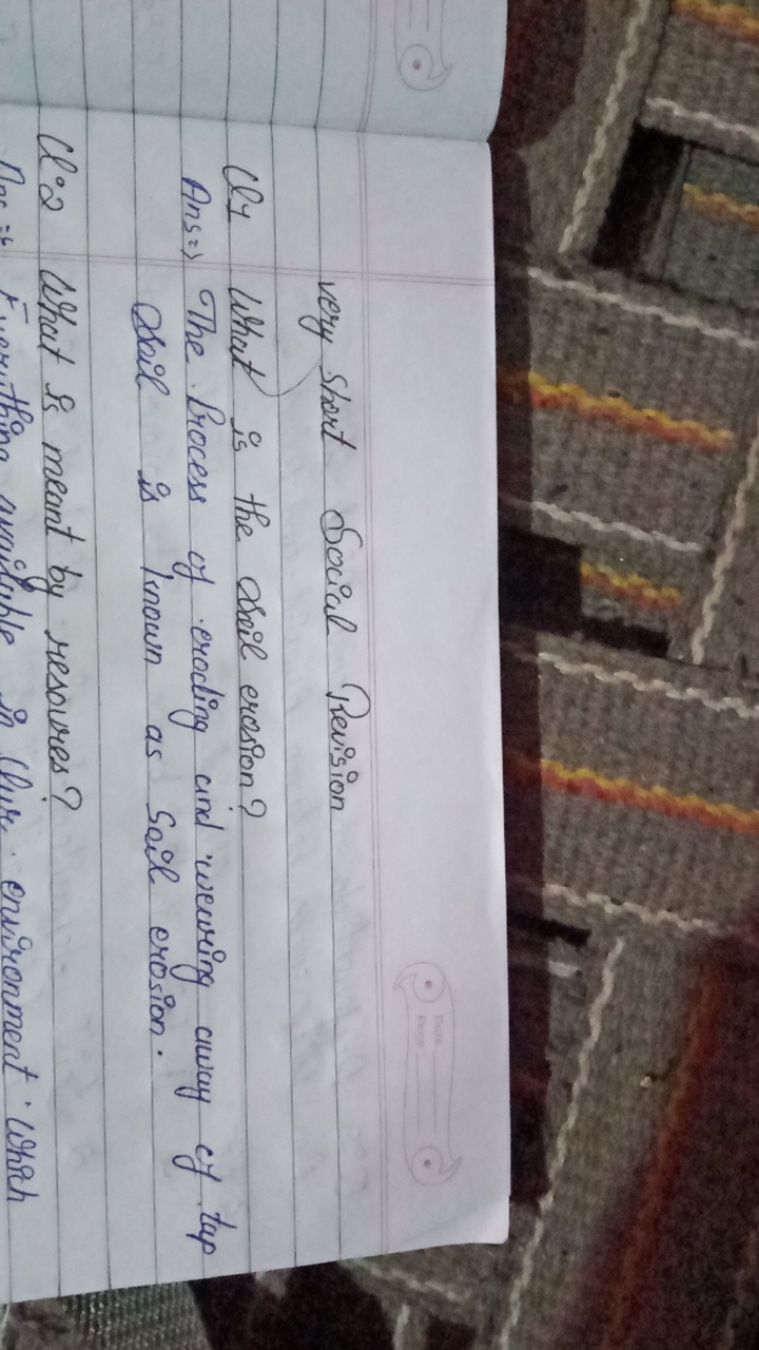 Date
Page
very short Social Revision
Q.1 What is the soil erosion?
Ans=> The Process of eroding and wearing away of top
soil is known as Soil erosion.
Q.2 What is meant by resources?
Ans=> Everything available in environment which